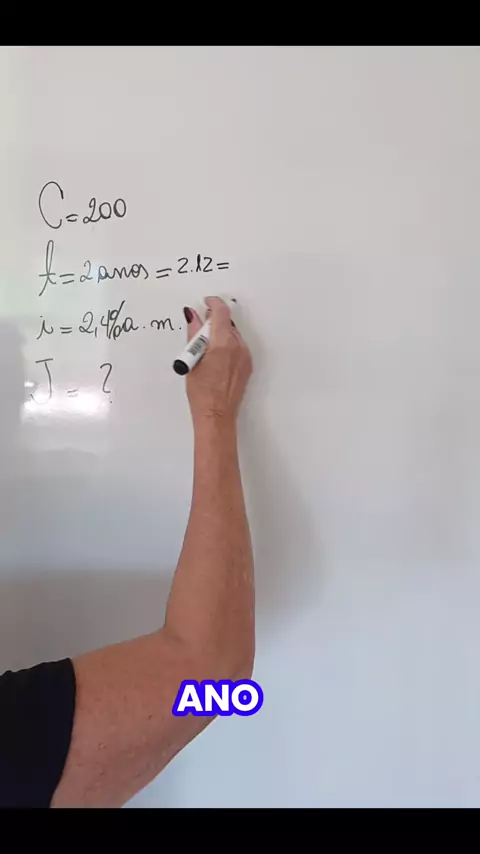 C = 200
t = 2 anos = 2.12 =
i = 2,4% a.m.
J = ?
ANO